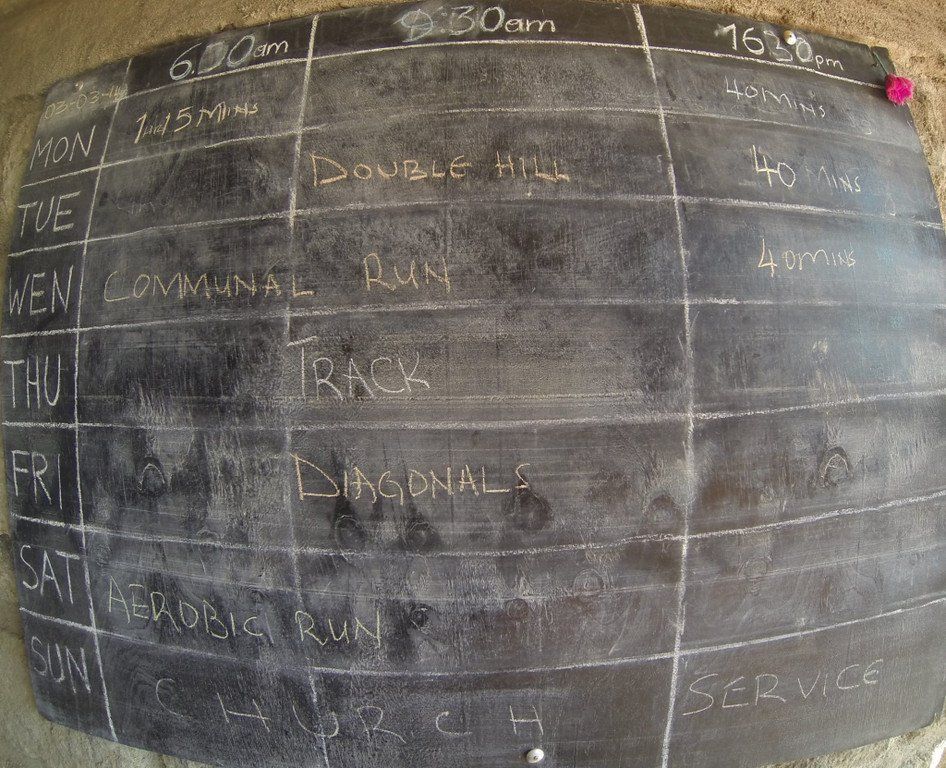 6.00am 9:30am 1630pm
03-03-14
MON 1HR15MINS 40MINS
TUE DOUBLE HILL 40 MINS
WEN COMMUNAL RUN 40MINS
THU TRACK
FRI DIAGONALS
SAT AEROBIC RUN
SUN CHURCH SERVICE